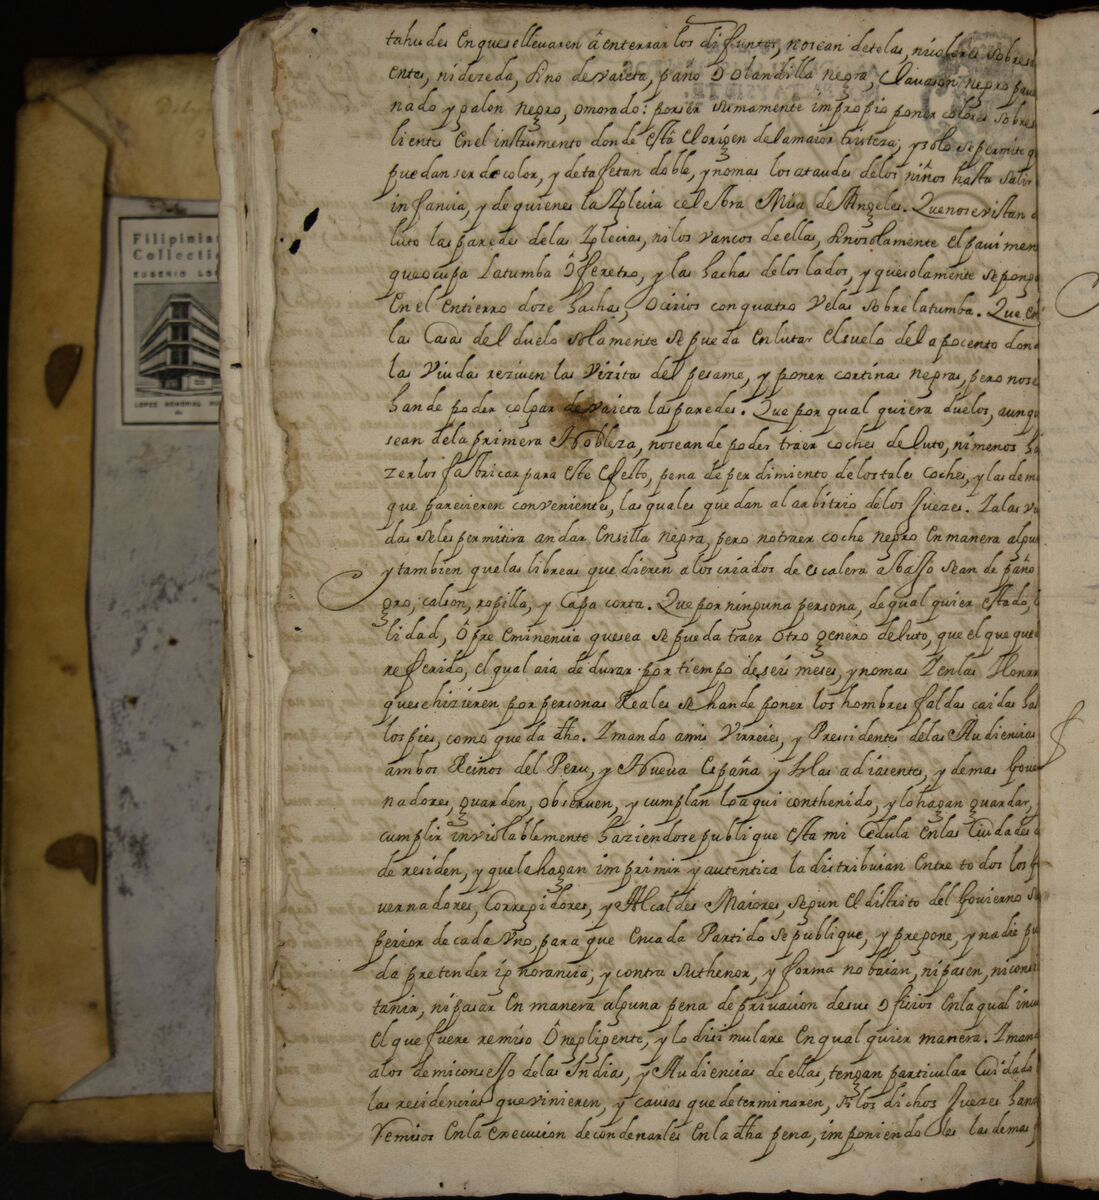 Filipiniana
Collection
EUGENIO LO
LOPEZ MEMORIAL MU
tahudes en que se llevaren â enterrar los difuntos, no sean de telas, ni colores sobresa
entes, ni de seda, sino de vaieta, paño o olandilla negra, clavason negro pavo
nado y galon negro, o morado: por ser sumamente impropio poner colores sobres
lientes en el instrumento donde está el origen de la maior tristeza; y solo se permite q
puedan ser de color, y de tafetan doble, y no mas los ataudes de los niños hasta salir
infancia, y de quienes la Iglecia celebra Misa de Angeles. Que no se vistan d
luto las paredes de las Iglecias, ni los vancos de ellas, sino solamente el pavimen
que ocupa la tumba ô feretro, y las hachas de los lados, y que solamente se pong
en el entierro doze hachas, o cirios con quatro velas sobre la tumba. Que en
las Casas del duelo solamente se pueda enlutar el suelo del apocento dond
las Viudas reziven las Vizitas del pesame, y poner cortinas negras, pero no se
han de poder colgar de vaieta las paredes. Que por qual quiera duelos, aunqu
sean de la primera Nobleza, no se an de poder traer coches de luto, ni menos ha
zerlos fabricar para este efecto, pena de perdimiento de los tales coches, y las dema
que parecieren convenientes, las quales quedan al arbitrio de los Juezes. I a las viu
das se les permitira andar en silla negra, pero no traer coche negro en manera algun
y tambien que las libreas que dieren a los criados de escalera abaxo sean de paño
gro, calson, ropilla, y capa corta. Que por ninguna persona, de qual quier estado,
lidad, ô preeminencia que sea se pueda traer otro genero de luto, que el que que
referido, el qual aia de durar por tiempo de seis meses, y no mas I en las Honrr
que se hizieren por personas Reales se han de poner los hombres faldas caidas has
los pies, como queda dho. I mando a mis Virreies, y Pressidentes de las Audiencias
ambos Reinos del Peru, y Nueva España y Islas adiacentes, y demas Gove
nadores, guarden, observen, y cumplan lo aqui conthenido, y lo hagan guardar,
cumplir inviolablemente haziendose publique esta mi Cedula en las Ciudades d
de residen, y que la hagan imprimir y autentica la distribuian entre todos los Go
vernadores, Corregidores, y Alcaldes Maiores, segun el distrito del Govierno Su
perior de cada vno, para que en cada Partido se publique, y pregone, y nadie pu
da pretender ignorancia, y contra su thenor, y forma no baian, ni pasen, ni consi
tan ir, ni pasar en manera alguna pena de privacion de sus oficios en la qual incu
el que fuere remiso ô negligente, y lo disimulare en qual quier manera. I mand
a los de mi consejo de las Indias, y Audiencias de ellas, tengan particular Cuidado
las residencias que vinieren, y causas que determinaren, si los dichos Juezes han
remisos en la execucion de condenarles en la dha pena, imponiendoles las demas